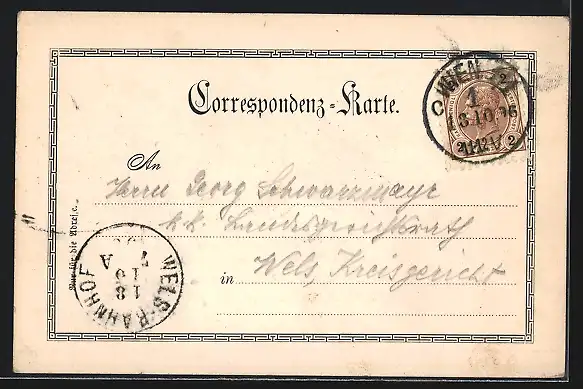 Correspondenz-Karte.
WIEN
1
3.10.96
2 2
An
Herrn Georg Schwarzmayr
k.k. Landesgerichtsrath
in Wels, Kreisgericht
Nur für die Adresse.
WELS-BAHNHOF
7 A
10
8
1